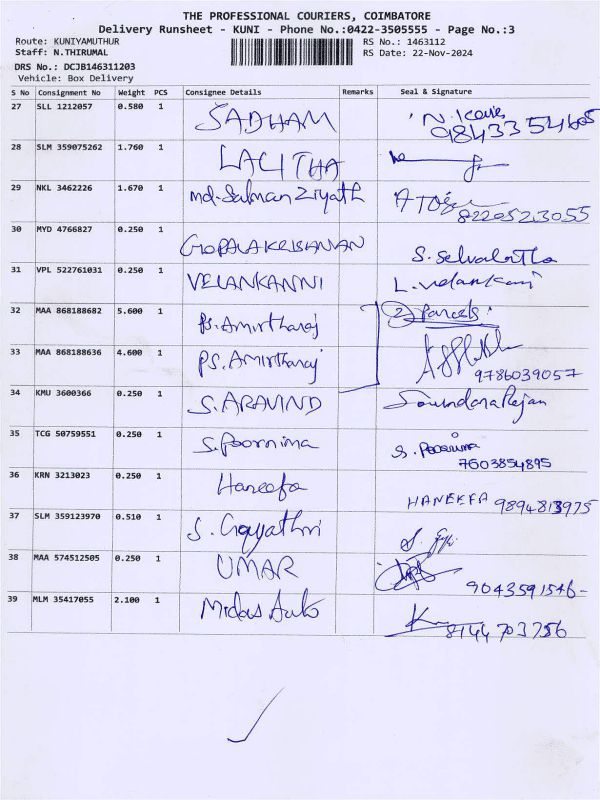 THE PROFESSIONAL COURIERS, COIMBATORE
Delivery Runsheet - KUNI - Phone No.:0422-3505555 - Page No.:3
Route: KUNIYAMUTHUR RS No.: 1463112
Staff: N.THIRUMAL RS Date: 22-Nov-2024
DRS No.: DCJB146311203
Vehicle: Box Delivery
S No Consignment No Weight PCS Consignee Details Remarks Seal & Signature
27 SLL 1212057 0.580 1 SADHAM
28 SLM 359075262 1.760 1 LALITHA
29 NKL 3462226 1.670 1 md. Salman Ziyath 8220523055
30 MYD 4766827 0.250 1 GOPALAKRISHNAN S. Selvalatha
31 VPL 522761031 0.250 1 VELANKANNI L.
32 MAA 868188682 5.600 1 Ps. Amirtharaj 2 Parcels
33 MAA 868188636 4.600 1 PS. Amirtharaj 9786039057
34 KMU 3600366 0.250 1 S. ARAVIND Soundara Rajan
35 TCG 50759551 0.250 1 S. Poornima S. Poornima 7603854895
36 KRN 3213023 0.250 1 Haneefa HANEEFA 9894813975
37 SLM 359123970 0.510 1 S. Gayathri
38 MAA 574512505 0.250 1 UMAR 9043591546
39 MLM 35417055 2.100 1 Midas Auto 8144703756